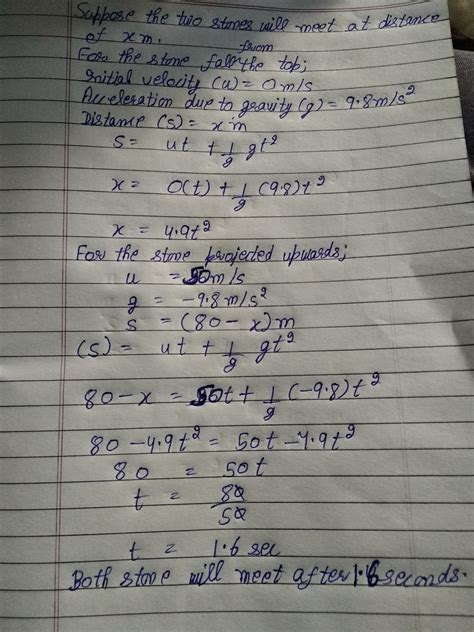 Suppose the two stones will meet at distance
of x m.
For the stone fall from the top;
initial velocity (u) = 0 m/s
Acceleration due to gravity (g) = 9.8 m/s²
Distance (s) = x m
s = ut + 1/2 gt²
x = 0(t) + 1/2 (9.8) t²
x = 4.9t²
For the stone projected upwards;
u = 50 m/s
g = -9.8 m/s²
s = (80 - x) m
(s) = ut + 1/2 gt²
80 - x = 50t + 1/2 (-9.8) t²
80 - 4.9t² = 50t - 4.9t²
80 = 50t
t = 80/50
t = 1.6 sec
Both stone will meet after 1.6 seconds.